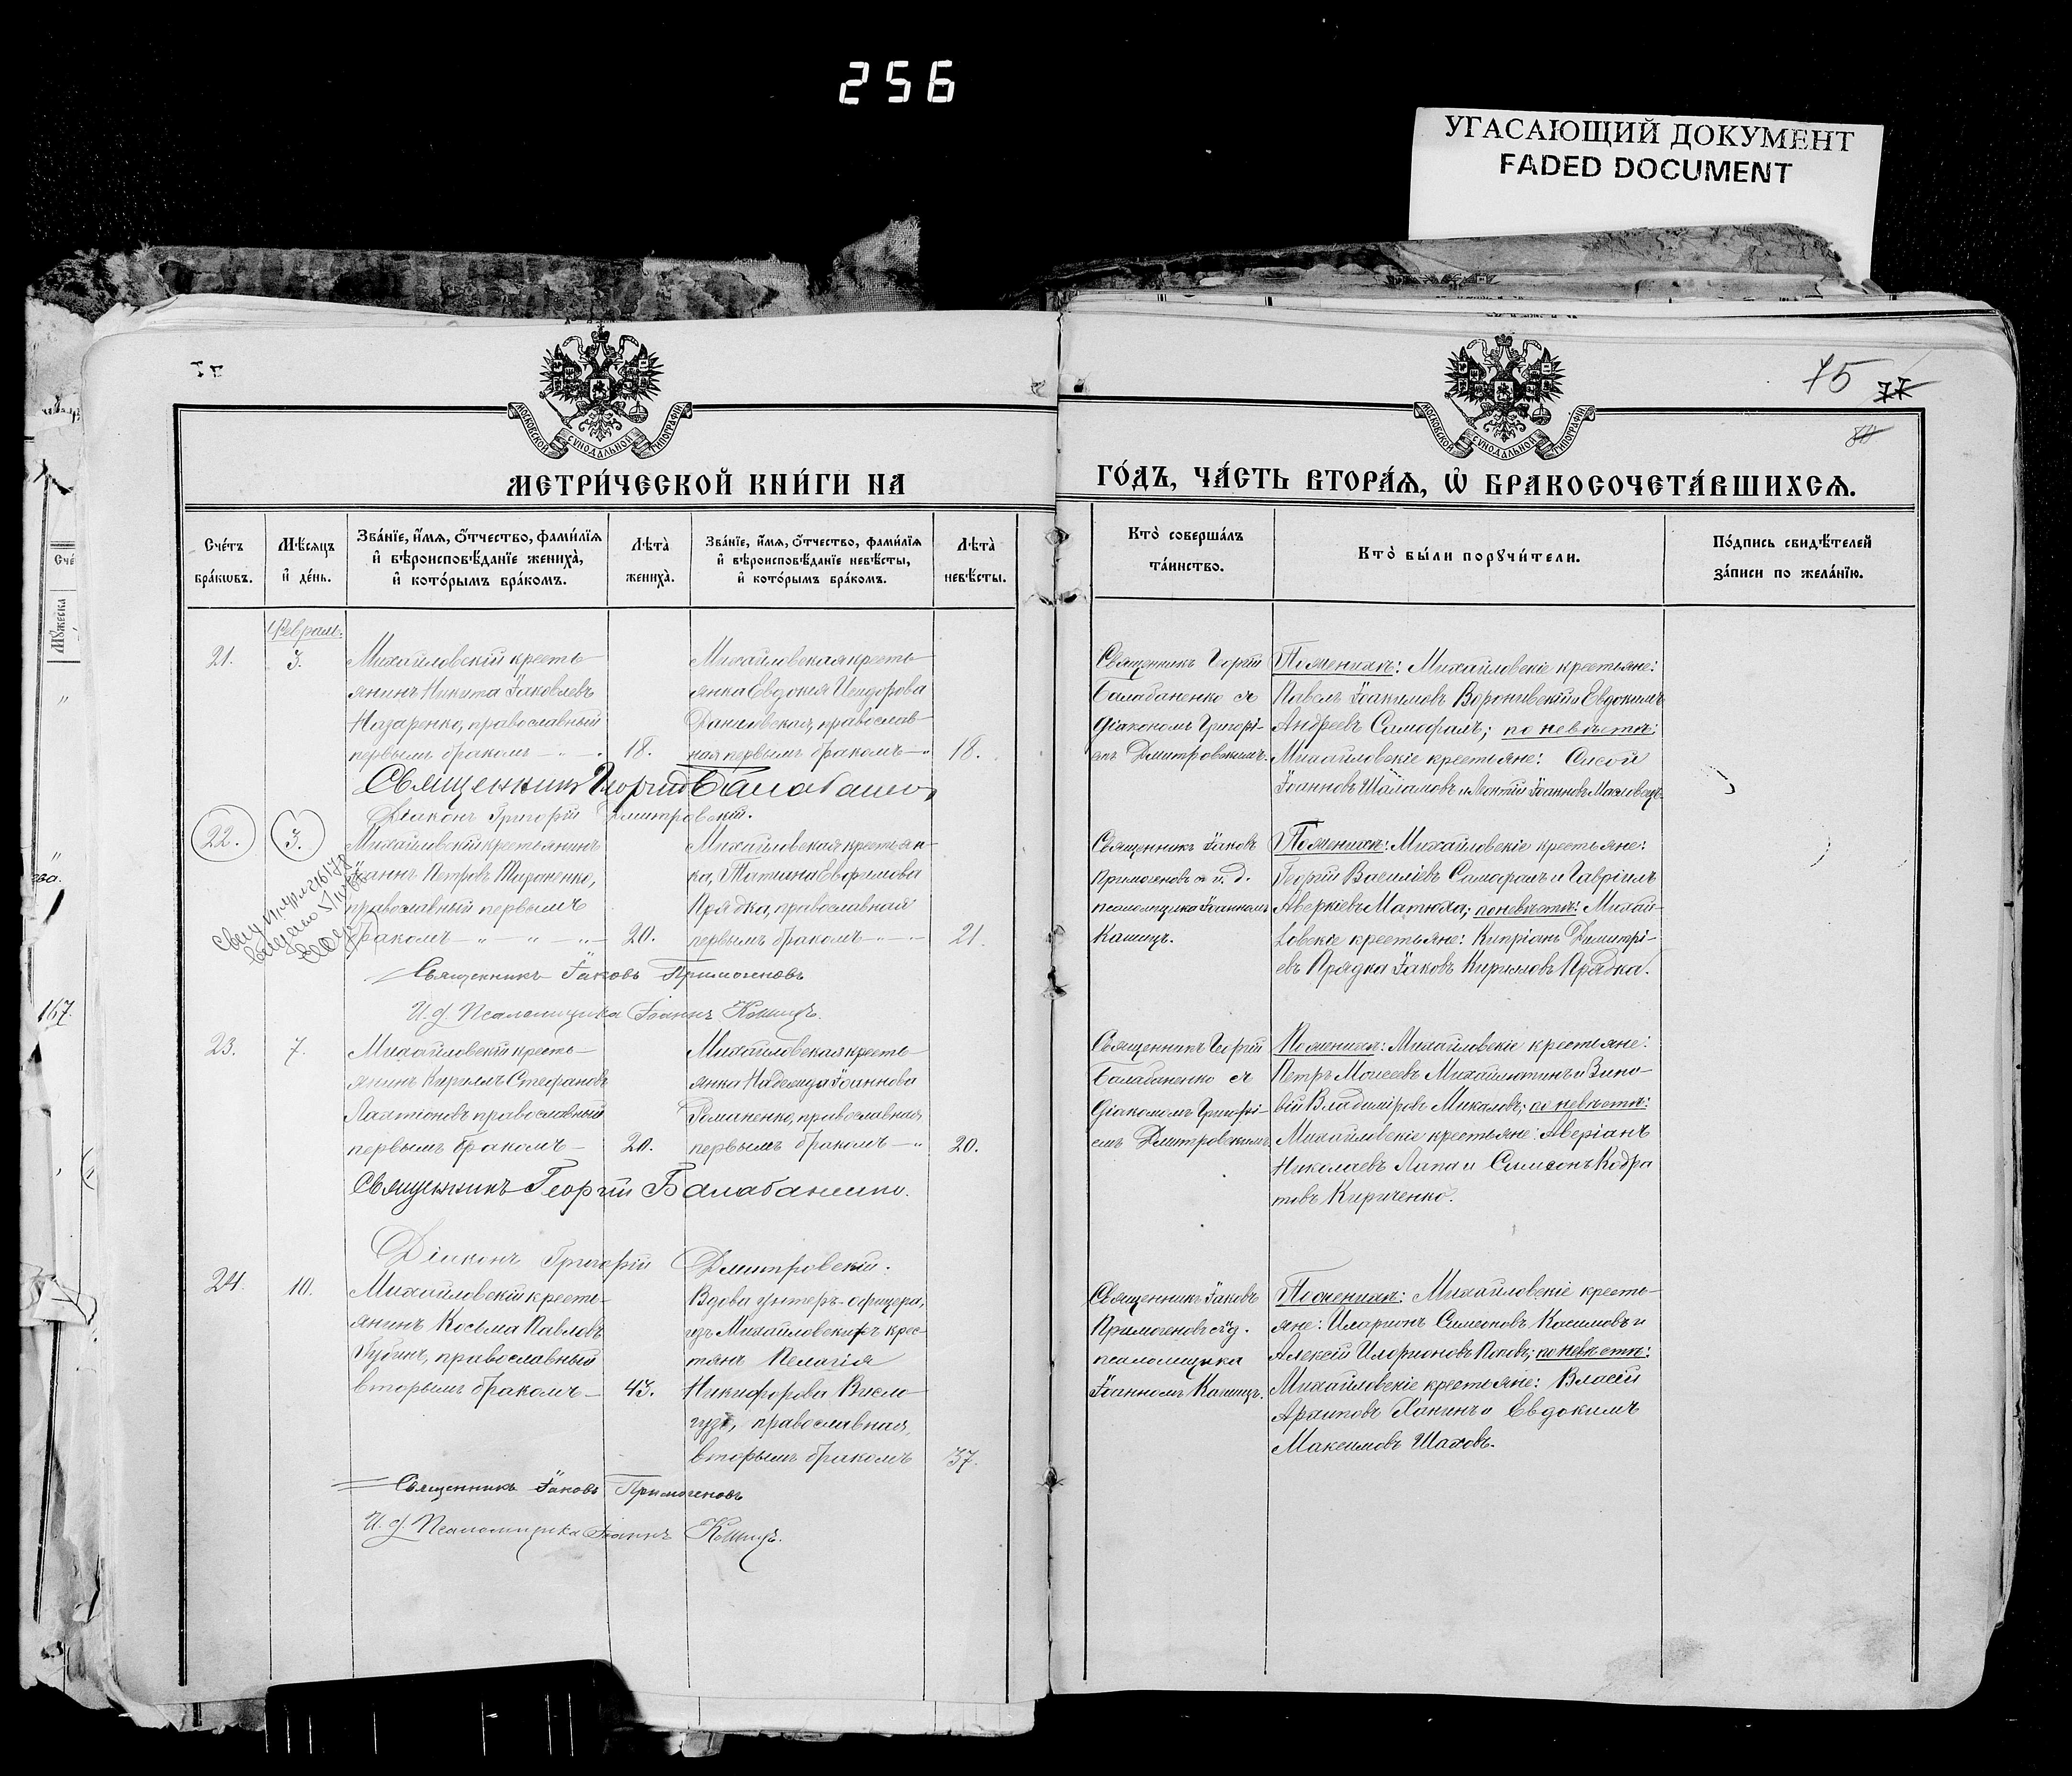 256
УГАСАЮЩИЙ ДОКУМЕНТ
FADED DOCUMENT
75
77
МОСКОВСКОЙ СѴНОДАЛЬНОЙ ТИПОГРАФІИ
МОСКОВСКОЙ СѴНОДАЛЬНОЙ ТИПОГРАФІИ
МЕТРИ́ЧЕСКОЙ КНИ́ГИ НА
ГО́ДЪ, ЧА́СТЬ ВТОРА́Ѧ, Ѡ҆ БРАКОСОЧЕТА́ВШИХСѦ.
Сче́тъ бра́кѡвъ.
Мѣ́сяцъ и҆ де́нь.
Зва́нїе, и҆́мя, ѻ҆́тчество, фами́лїя
и҆ вѣроисповѣ́данїе жениха̀,
и҆ кото́рымъ бра́комъ.
Лѣта̀ жениха̀.
Зва́нїе, и҆́мя, ѻ҆́тчество, фами́лїя
и҆ вѣроисповѣ́данїе невѣ́сты,
и҆ кото́рымъ бра́комъ.
Лѣта̀ невѣ́сты.
Кто̀ соверша́лъ
та́инство.
Кто̀ бы́ли порꙋчи́тели.
По́дпись свидѣ́телей
за́писи по жела́нїю.
Февраль.
21.
3.
Михайловскій кресть-
янинъ Никита Іаковлевъ
Назаренко, православный
первымъ бракомъ
18.
Михайловская кресть-
янка Евдокія Исидорова
Даниловская, православ-
ная первымъ бракомъ
18.
Священникъ Георгій
Балабаненко съ
діакономъ Григорі-
емъ Дмитровскимъ.
По женихѣ: Михайловскіе крестьяне:
Павелъ Іоакимовъ Воронивскій и Евдокимъ
Андреевъ Самофалъ; по невѣстѣ:
Михайловскіе крестьяне: Сисой
Іоанновъ Шаламовъ и Леонтій Іоанновъ Масловецъ.
Священникъ Георгій Балабаненко
Діаконъ Григорій Дмитровскій.
22.
3.
Михайловскій крестьянинъ
Іоаннъ Петровъ Мироненко,
православный первымъ
бракомъ
20.
Михайловская крестьян-
ка, Татіана Евфимова
Прядка, православная
первымъ бракомъ
21.
Священникъ Іаковъ
Примогеновъ съ и. д.
псаломщика Іоанномъ
Кашицъ.
По женихѣ: Михайловскіе крестьяне:
Георгій Василіевъ Самофалъ и Гавріилъ
Аверкіевъ Матюха; по невѣстѣ: Михай-
ловскіе крестьяне: Кипріанъ Димитрі-
евъ Прядка Іаковъ Кириловъ Прядка.
Священникъ Іаковъ Примогеновъ
И. д. Псаломщика Іоаннъ Кашицъ.
23.
7.
Михайловскій кресть-
янинъ Кириллъ Стефановъ
Лактіоновъ православный
первымъ бракомъ
20.
Михайловская кресть-
янка Надежда Іоаннова
Романенко, православная,
первымъ бракомъ
20.
Священникъ Георгій
Балабаненко съ
діакономъ Григорі-
емъ Дмитровскимъ
По женихѣ: Михайловскіе крестьяне:
Петръ Моисеевъ Михайлютинъ и Зино-
вій Владиміровъ Михаловъ; по невѣстѣ:
Михайловскіе крестьяне: Аверіанъ
Николаевъ Лапа и Симеонъ Кодра
товъ Кириченко.
Священникъ Георгій Балабаненко.
Діаконъ Григорій Дмитровскій.
24.
10.
Михайловскій кресть-
янинъ Косьма Павловъ
Губинъ, православный
вторымъ бракомъ
43.
Вдова унтеръ-офицера,
изъ Михайловскихъ крес-
тянъ Пелагія
Никифорова Висло-
гузъ, православная,
вторымъ бракомъ
37.
Священникъ Іаковъ
Примогеновъ съ и д.
псаломщика
Іоанномъ Кашицъ.
По женихѣ: Михайловскіе кресть-
яне: Иларіонъ Симеоновъ Касимовъ и
Алексій Иларіоновъ Поповъ; по невѣстѣ:
Михайловскіе крестьяне: Власій
Архиповъ Ханинъ и Евдокимъ
Максимовъ Шаховъ.
Священникъ Іаковъ Примогеновъ
И. д. Псаломщика Іоаннъ Кашицъ.
167.